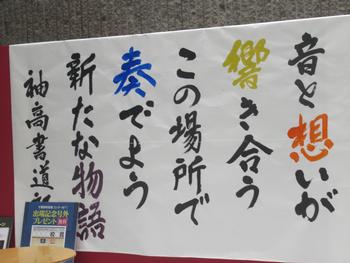 音と想いが
響き合う
この場所で
奏でよう
新たな物語
袖高書道
出場記念号外
プレゼント